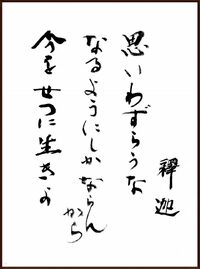 思いわずらうな
なるようにしかならん
から
今をせつに生きよ
釋迦